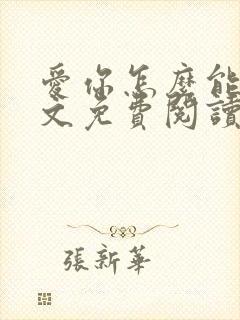 愛你怎麼能
文免費閱讀
張新華